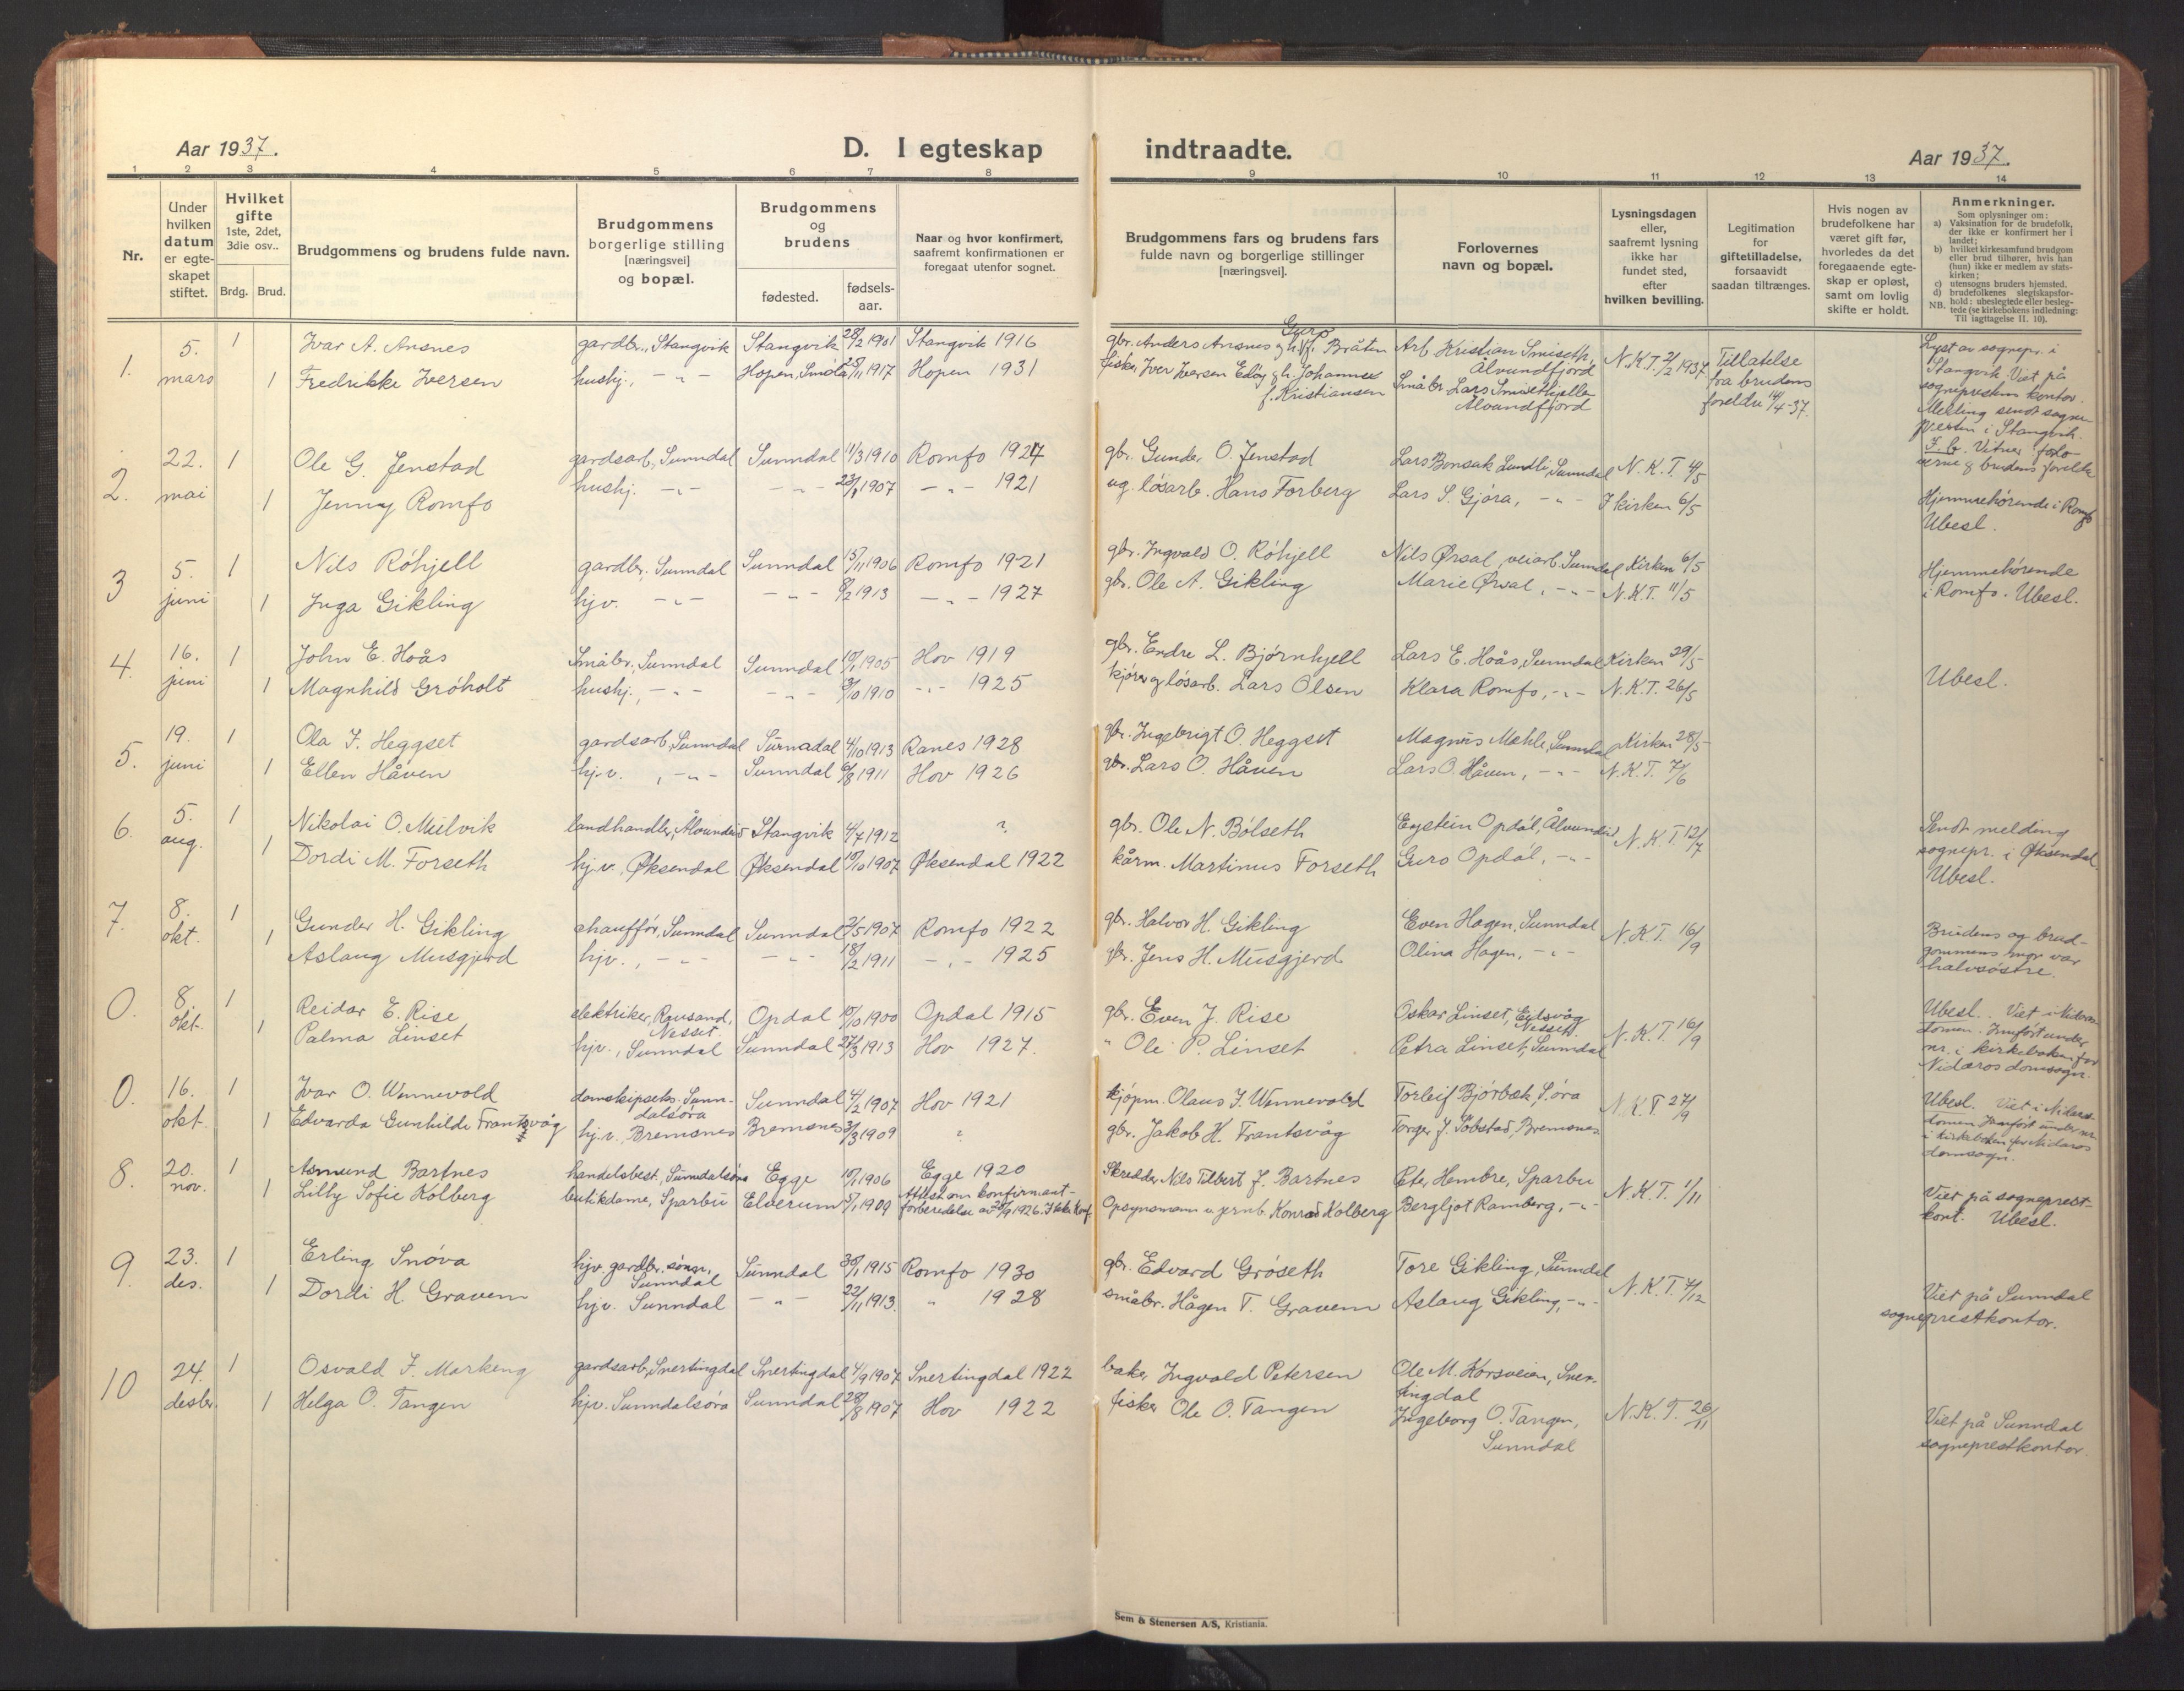 Aar 1937.
D. I egteskap indtraadte.
Aar 1937.
1 2 3 4 5 6 7 8 9 10 11 12 13 14
Nr.
Under
hvilken
datum
er egte-
skapet
stiftet.
Hvilket
gifte
1ste, 2det,
3die osv..
Brdg. Brud.
Brudgommens og brudens fulde navn.
Brudgommens
borgerlige stilling
[næringsvei]
og bopæl.
Brudgommens
og
brudens
fødested.
fødsels-
aar.
Naar og hvor konfirmert,
saafremt konfirmationen er
foregaat utenfor sognet.
Brudgommens fars og brudens fars
fulde navn og borgerlige stillinger
[næringsvei].
Forlovernes
navn og bopæl.
Lysningsdagen
eller,
saafremt lysning
ikke har
fundet sted,
efter
hvilken bevilling.
Legitimation
for
giftetilladelse,
forsaavidt
saadan tiltrænges.
Hvis nogen av
brudefolkene har
været gift før,
hvorledes da det
foregaaende egte-
skap er opløst,
samt om lovlig
skifte er holdt.
Anmerkninger.
Som oplysninger om:
a) Vaksination for de brudefolk,
der ikke er konfirmert her i
landet;
b) hvilket kirkesamfund brudgom
eller brud tilhører, hvis han
(hun) ikke er medlem av stats-
kirken;
c) utensogns bruders hjemsted.
d) brudefolkenes slegtskapsfor-
NB. hold: ubeslegtede eller besleg-
tede (se kirkebokens indledning:
Til iagttagelse II. 10).
1. 5. mars 1 Ivar A. Ansnes gardbr., Stangvik Stangvik 28/2 1901 Stangvik 1916 gbr. Anders Ansnes og h. f. Guro Bråten Arb. Kristian Smiseth, Ålvundfjord N.K.T. 2/2 1937 Tillatelse fra brudens foreldre 14/4-37.
1 Fredrikke Iversen hushj., -"- Hopen, Smøla 25/11 1917 Hopen 1931 fisker Iver Iversen Edøy og h. Johannes f. Kristiansen Småbr. Lars Smisethjellen Ålvundfjord
Lyst av sognepr. i
Stangvik. Viet på
sogneprestens kontor.
Melding sendt sogne-
presten i Stangvik.
2. 22. mai 1 Ole G. Jenstad gardsarb., Sunndal Sunndal 11/3 1910 Romfo 1924 gbr. Gunder O. Jenstad Lars Bonsak Lundli, Sunndal N.K.T. 4/5
1 Jenny Romfo hushj. -"- -"- 23/1 1907 -"- 1921 ug. løsarb. Hans Forberg Lars S. Gjøra, -"- I kirken 6/5
Hjemmehørende i Romfo
Ubesl.
3 5. juni 1 Nils Röhjell gardbr., Sunndal Sunndal 15/11 1906 Romfo 1921 gbr. Ingvald O. Röhjell Nils Ørsal, veiarb. Sunndal Kirken 6/5
1 Inga Gikling hjv. -"- -"- 8/2 1913 -"- 1927 gbr. Ole A. Gikling Marie Ørsal, -"- N.K.T. 11/5
Hjemmehørende
i Romfo. Ubesl.
4. 16. juni 1 John E. Hoås Småbr., Sunndal Sunndal 10/1 1905 Hov 1919 gbr. Endre L. Bjørnhjell Lars E. Hoås, Sunndal Kirken 29/5
1 Magnhild Gröholt hushj., -"- -"- 3/10 1910 -"- 1925 kjører og løsarb. Lars Olsen Klara Romfo, -"- N.K.T. 26/5
Ubesl.
5. 19. juni 1 Ola I. Heggset gardsarb., Sunndal Surnadal 4/10 1913 Ranes 1928 gbr. Ingebrigt O. Heggset Magnus Mæhle, Sunndal Kirken 28/5
1 Ellen Håven hj.v., -"- Sunndal 6/8 1911 Hov 1926 gbr. Lars O. Håven Lars O. Håven, -"- N.K.T. 7/6
6. 5. aug. 1 Nikolai O. Mulvik landhandler, Ålvundeid Stangvik 4/7 1912 ? gbr. Ole N. Bölseth Eystein Opdöl, Ålvundeid N.K.T. 12/7
1 Dordi M. Forseth hj.v., Øksendal Øksendal 10/10 1907 Øksendal 1922 kårm. Martinus Forseth Guro Opdöl, -"-
Sendt melding
sognepr. i Øksendal.
Ubesl.
7. 8. okt. 1 Gunder H. Gikling chauffør, Sunndal Sunndal 2/5 1907 Romfo 1922 gbr. Halvor H. Gikling Even Hagen, Sunndal N.K.T. 16/9
1 Aslaug Musgjerd hjv., -"- -"- 18/2 1911 -"- 1925 gbr. Jens H. Musgjerd Olina Hagen, -"-
Brudens og brud-
gommens mor var
halvsøstre.
0. 8. okt. 1 Reidar E. Rise elektriker, Rausand, Nesset. Opdal 10/10 1900 Opdal 1915 gbr. Even J. Rise Oskar Linset, Eidsvåg Nesset. N.K.T. 16/9
1 Palma Linset hjv., Sunndal Sunndal 27/3 1913 Hov 1927. " Ole P. Linset Petra Linset, Sunndal
Ubesl. Viet i Nidaros-
domen. Innført under
nr. i kirkeboken for
Nidaros domsogn.
0. 16. okt. 1 Ivar O. Wennevold damskipseks. Sunn-dalsøra Sunndal 4/2 1907 Hov 1921 kjøpm. Olaus I. Wennevold Torleif Bjørbæk, S.øra N.K.T 27/9
1 Edvarda Gunhilde Frantsvåg hj.v., Bremsnes Bremsnes 3/3 1909 ? gbr. Jakob H. Frantsvåg Torger J. Søbstad, Bremsnes
Ubesl. Viet i Nidaros-
domen. Innført under nr.
i kirkeboken for Nidaros
domsogn.
8. 20. nov. 1 Asmund Bartnes handelsbest., Sunndalsøra Egge 10/1 1906 Egge 1920 Skredder Nils Tilbert J. Bartnes Peter Hembre, Sparbu N.K.T. 1/11
1 Lilly Sofie Kolberg butikdame, Sparbu Elverum 5/1 1909 Attest om konfirmant-forberedelse av 20/9 1926. Ikke konf. Opsynsmann v. jernb. Konrad Kolberg Bergljot Ramberg, -"-
Viet på sogneprest-
kont. Ubesl.
9. 23. des. 1 Erling Snöva hjv. gardbr. sønn, Sunndal Sunndal 30/1 1915 Romfo 1930 gbr. Edvard Gröseth Tore Gikling, Sunndal N.K.T. 4/12
1 Dordi H. Gravem hjv. Sunndal -"- 22/11 1913. " 1928 småbr. Hågen T. Gravem Aslaug Gikling, -"-
Viet på Sunndal
sogneprestkontor.
10 24. desbr. 1 Osvald I. Markeng gardsarb., Snertingdal Snertingdal 4/9 1907 Snertingdal 1922 baker Ingvald Petersen Ole M. Korsveien, Sner-tingdal N.K.T. 26/11
1 Helga O. Tangen hjv. Sunndalsøra Sunndal 28/8 1907 Hov 1922 fisker Ole O. Tangen Ingeborg O. Tangen, Sunndal
Viet på Sunndal
sogneprestkontor.
Sem & Stenersen A/S, Kristiania.